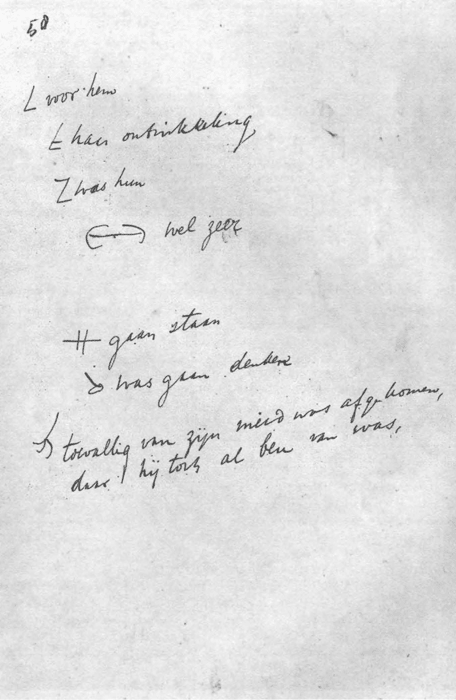 58
voor hem
haar ontwikkeling
was hun
wel zeer
gaan staan
was gaan denken
toevallig van zijn meid was afgekomen,
daar hij toch al ben van was,